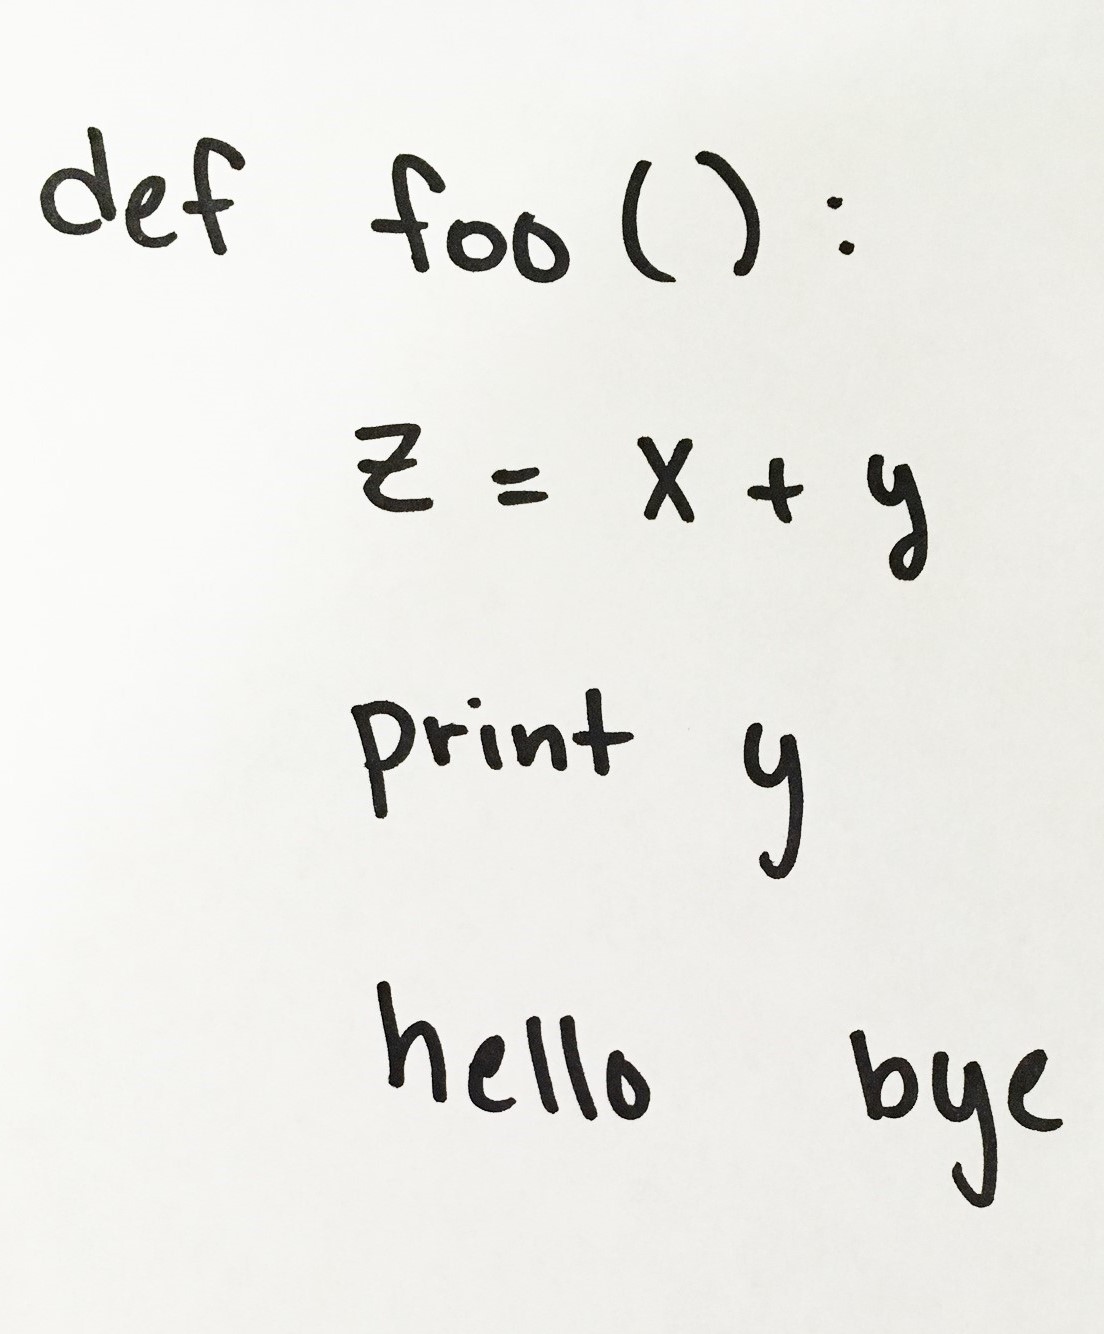 def foo():
z = x + y
print y
hello bye